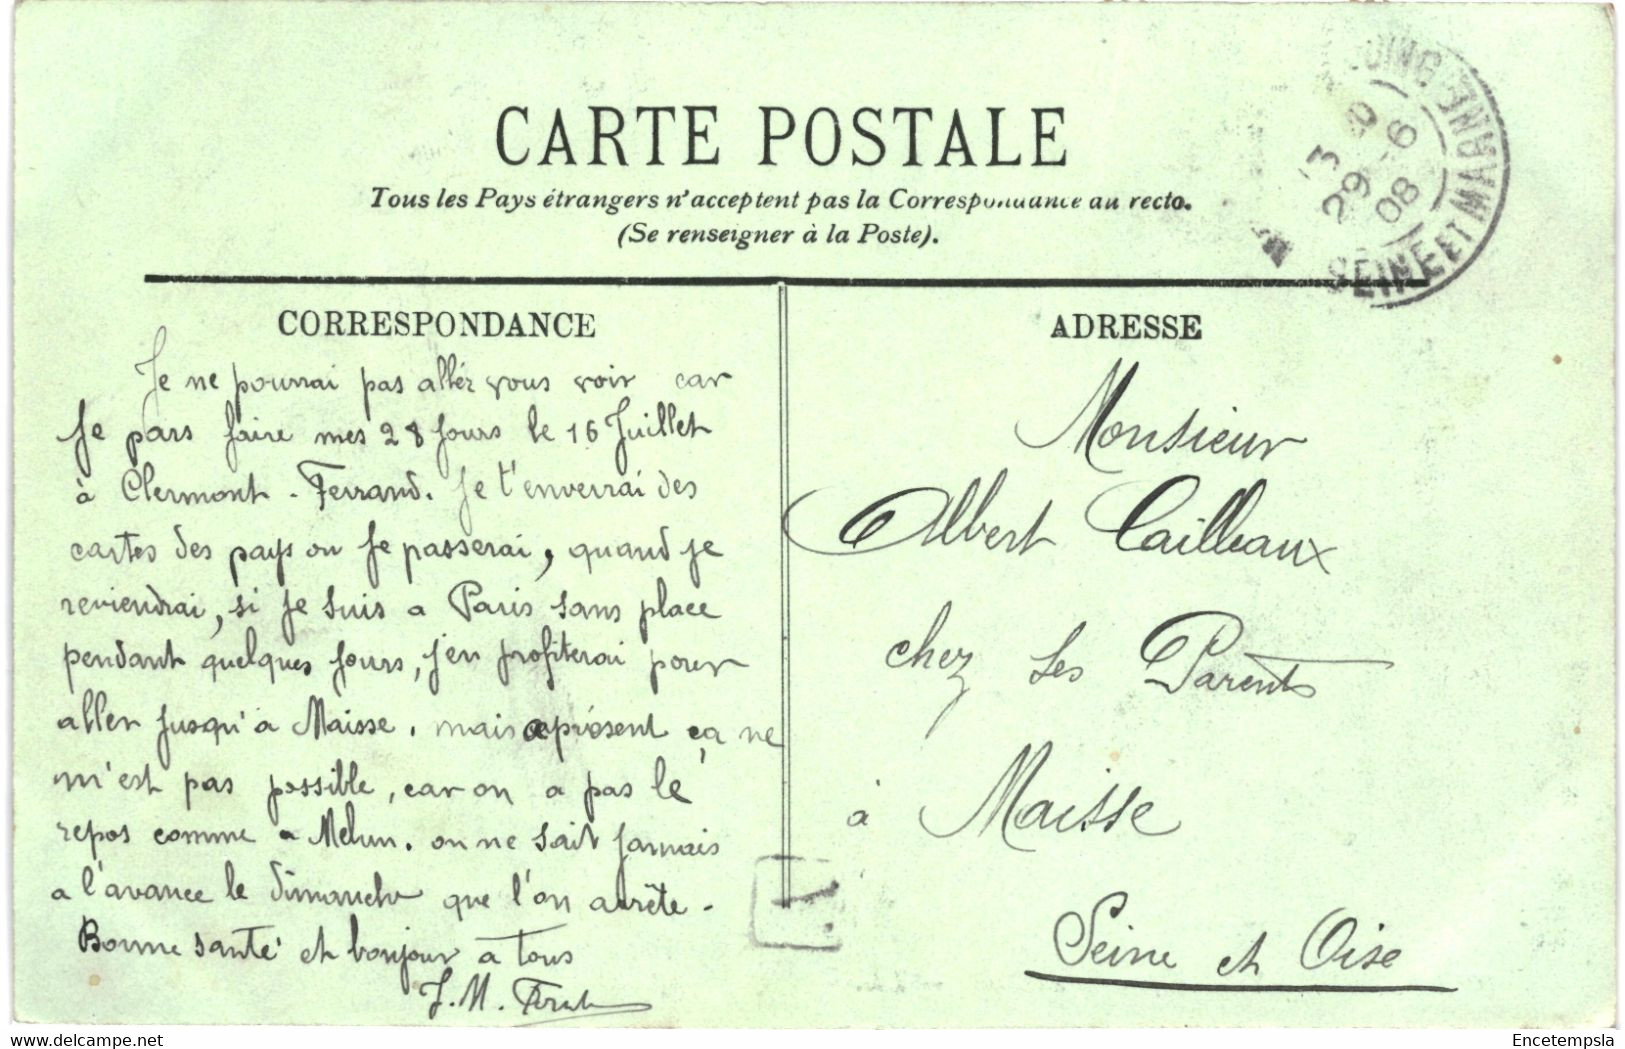 CARTE POSTALE
Tous les Pays étrangers n'acceptent pas la Correspondance au recto.
(Se renseigner à la Poste).
CORRESPONDANCE
Je ne pourrai pas allér vous voir car
Je pars faire mes 28 Jours le 16 Juillet
à Clermont-Ferrand. Je t'enverrai des
cartes des pays ou Je passerai, quand je
reviendrai, si je suis a Paris sans place
pendant quelques Jours, j'en profiterai pour
aller Jusqu'à Maisse. mais aprésent ça ne
m'est pas possible, car on a pas le
repos comme a Melun. on ne sait Jamais
a l'avance le dimanche que l'on arrête.
Bonne santé et bonjour a tous
J. M.
ADRESSE
Monsieur
Albert Cailleaux
chez ses Parents
à Maisse
Seine et Oise
29-6
08
SEINE ET MARNE
T
www.delcampe.net
Encetempsla